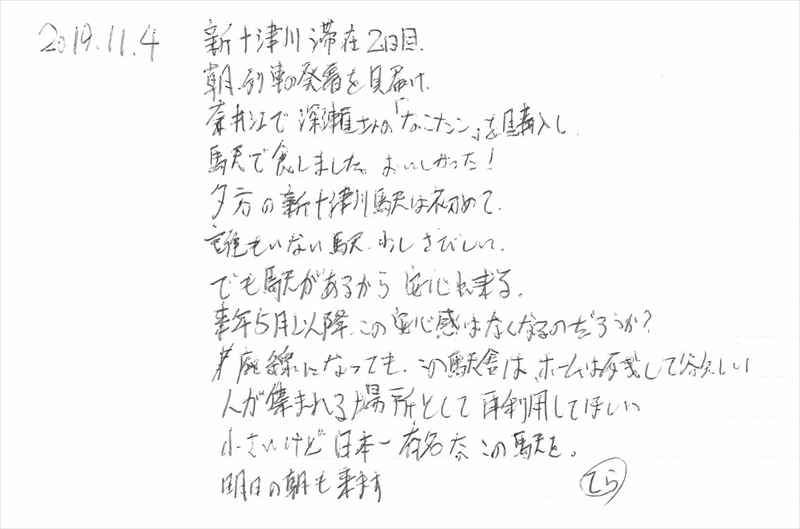 2019.11.4 新十津川滞在2日目、
朝、列車の発着を見届け、
奈井江で深瀬さんの「なこたン」を購入し
駅で食しました。おいしかった！
夕方の新十津川駅は初めて、
誰もいない駅、少しさびしい、
でも駅があるから安心出来る。
来年5月以降、この安心感はなくなるのだろうか？
廃線になっても、この駅舎は、ホームは残して欲しい
人が集まれる場所として再利用してほしい
小さいけど日本一有名な、この駅を。
明日の朝も来ます てら